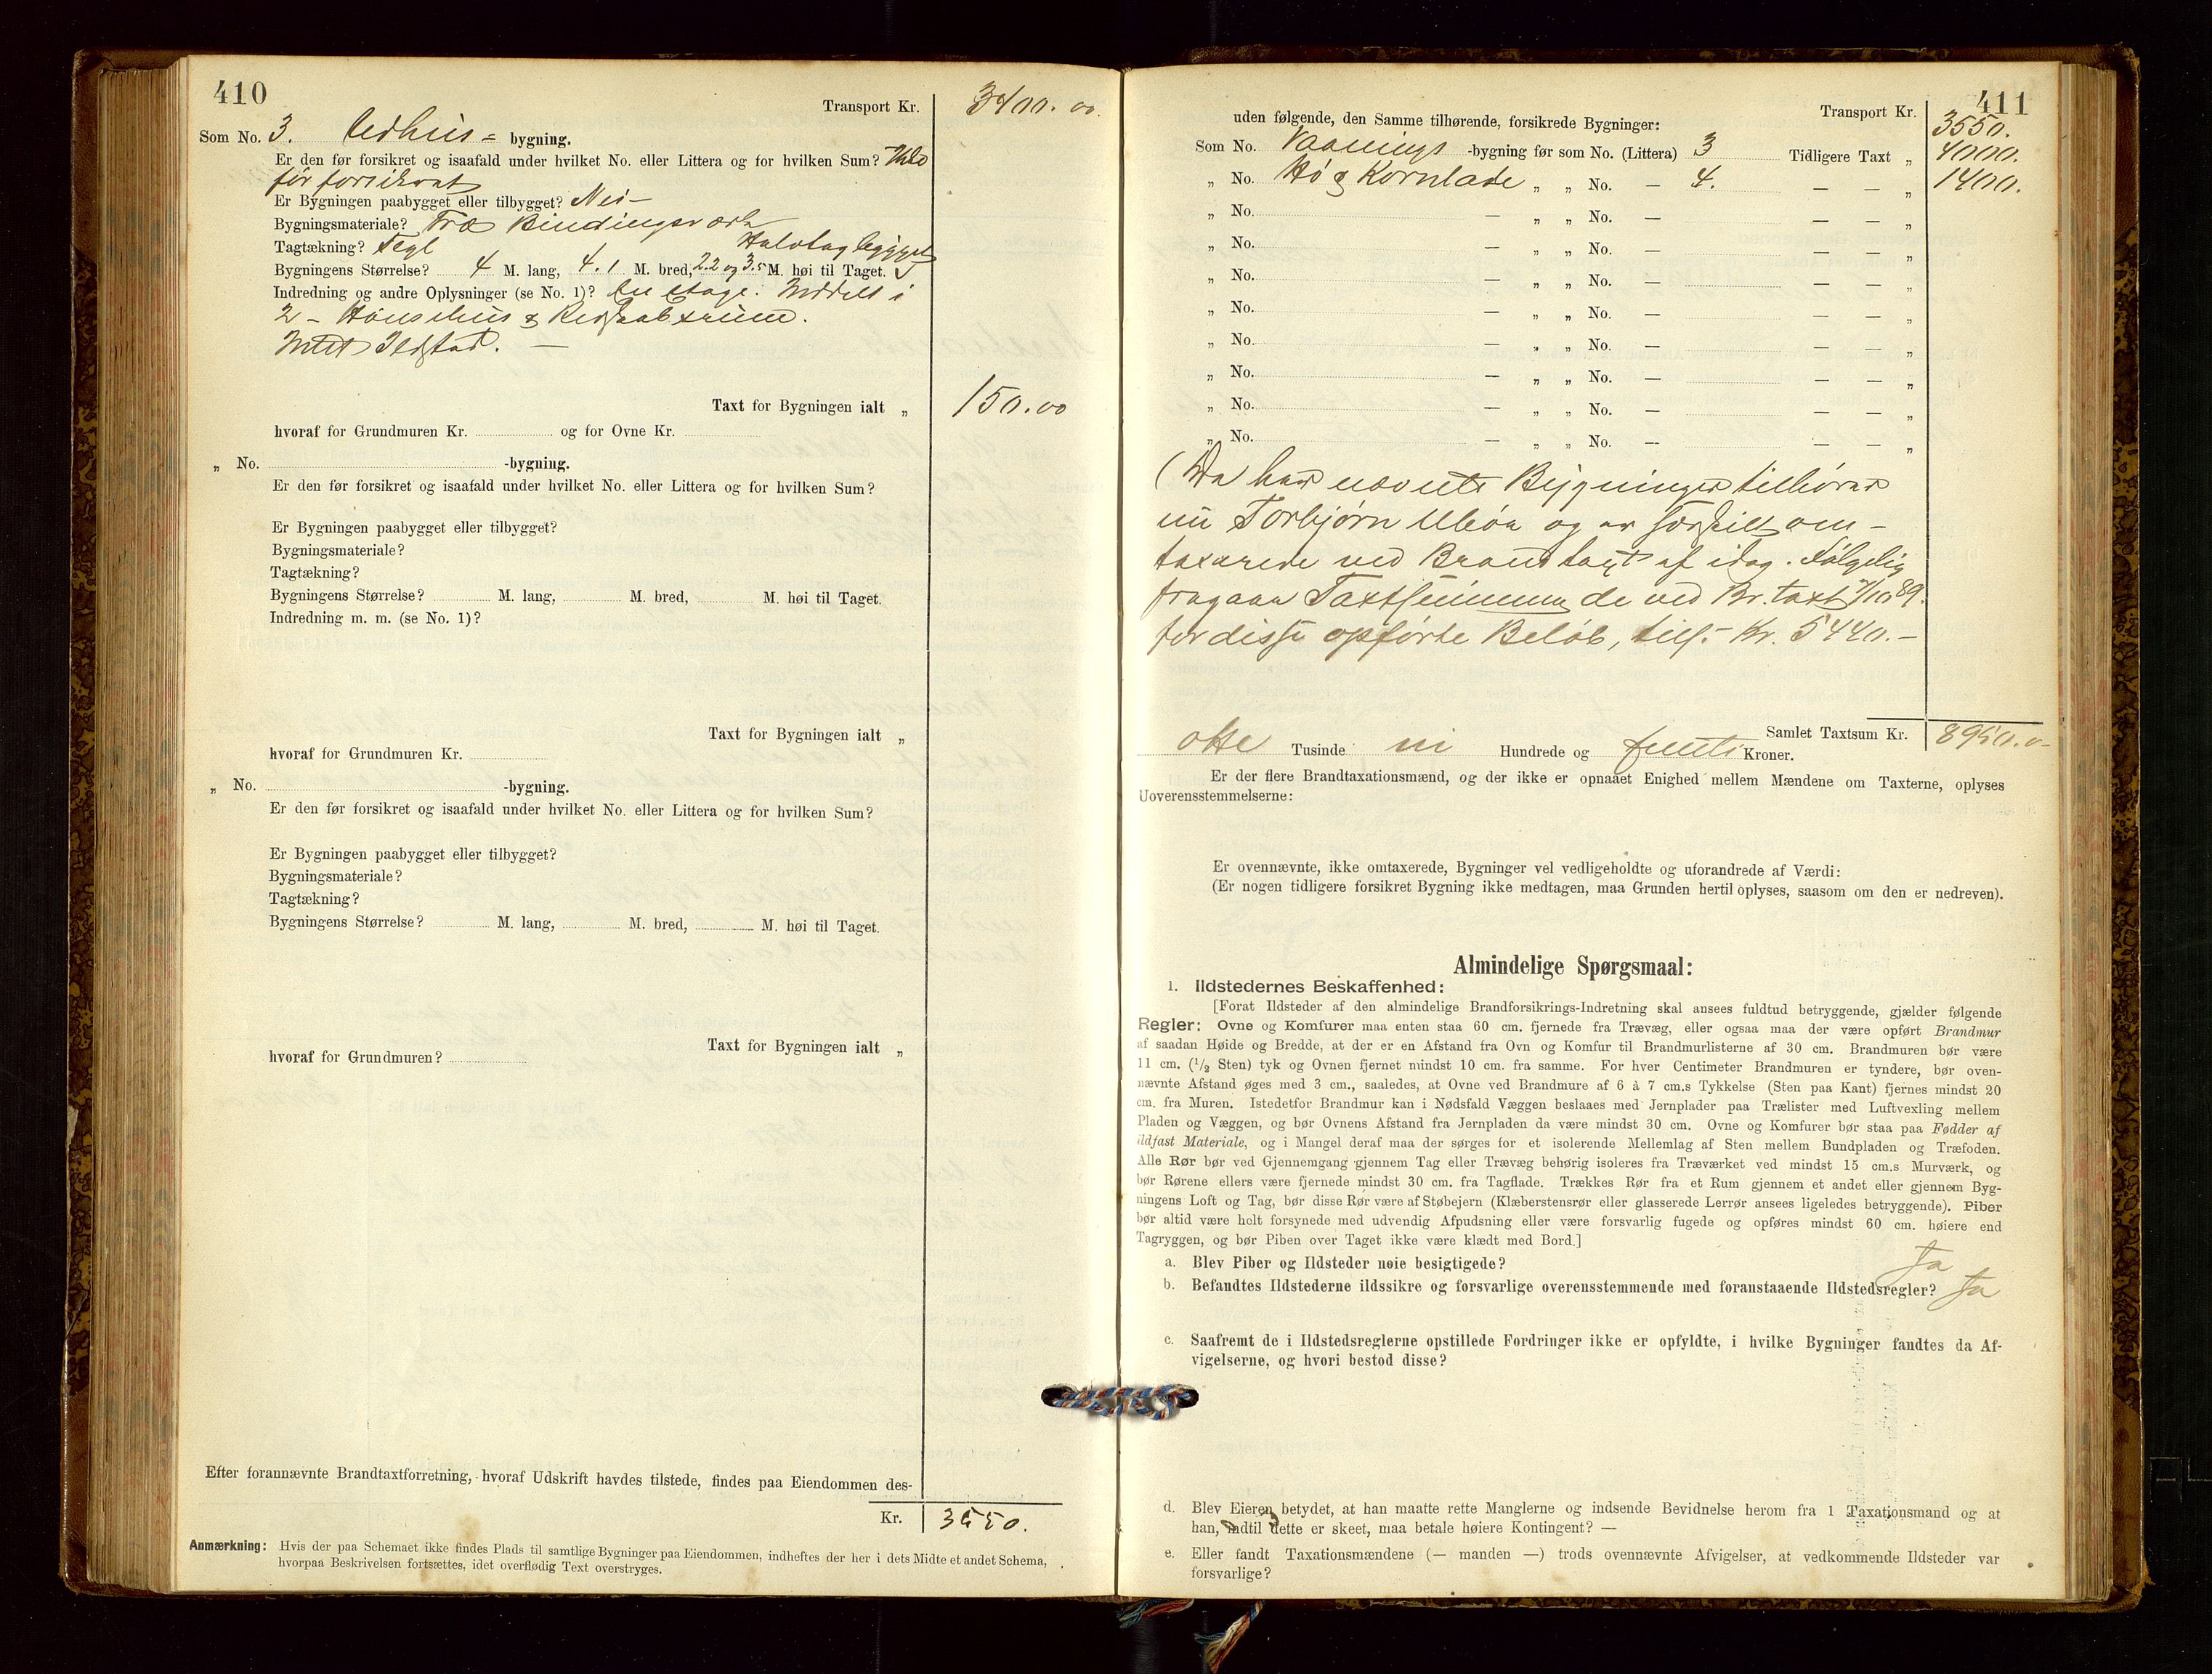 410
Transport Kr. 3400.00.
Som No. 3. Udhus = bygning.
Er den før forsikret og isaafald under hvilket No. eller Littera og for hvilken Sum? Ikke
før forsikret
Er Bygningen paabygget eller tilbygget? Nei -
Bygningsmateriale? Træ Bindingsværk
Tagtækning? Tegl Halvtag bygget
Bygningens Størrelse? 4 M. lang, 4.1 M. bred, 2.2 og 3.5 M. høi til Taget.
Indredning og andre Oplysninger (se No. 1)? En Etage. Inddelt i
2 - Hønsehus & Redskabsrum.
Intet Ildsted. —
Taxt for Bygningen ialt „ 150.00
hvoraf for Grundmuren Kr. og for Ovne Kr.
„ No. -bygning.
Er den før forsikret og isaafald under hvilket No. eller Littera og for hvilken Sum?
Er Bygningen paabygget eller tilbygget?
Bygningsmateriale?
Tagtækning?
Bygningens Størrelse? M. lang, M. bred, M. høi til Taget.
Indredning m. m. (se No. 1)?
Taxt for Bygningen ialt „
hvoraf for Grundmuren Kr.
„ No. -bygning.
Er den før forsikret og isaafald under hvilket No. eller Littera og for hvilken Sum?
Er Bygningen paabygget eller tilbygget?
Bygningsmateriale?
Tagtækning?
Bygningens Størrelse? M. lang, M. bred, M. høi til Taget.
Taxt for Bygningen ialt „
hvoraf for Grundmuren?
Efter forannævnte Brandtaxtforretning, hvoraf Udskrift havdes tilstede, findes paa Eiendommen des-
Kr. 3550.
Anmærkning: Hvis der paa Schemaet ikke findes Plads til samtlige Bygninger paa Eiendommen, indheftes der her i dets Midte et andet Schema,
hvorpaa Beskrivelsen fortsættes, idet overflødig Text overstryges.
411
Transport Kr. 3550.
uden følgende, den Samme tilhørende, forsikrede Bygninger:
Som No. Vaanings -bygning før som No. (Littera) 3 Tidligere Taxt „ 4000.
„ No. Hø & Kornlade „ „ No. — 4. — — „ 1400.
„ No. — „ „ No. — — — „
„ No. — „ „ No. — — — „
„ No. — „ „ No. — — — „
„ No. — „ „ No. — — — „
„ No. — „ „ No. — — — „
„ No. — „ „ No. — — — „
„ No. — „ „ No. — — — „
„ No. — „ „ No. — — — „
(De her nævnte Bygninger tilhører
nu Torbjørn og er særskilt om-
taxerede ved Brandtaxt af idag. Følgelig
fragaar Taxtsummen de ved Br. taxt 7/10 89.
for disse opførte Beløb, tils. - Kr. 5440.-
Samlet Taxtsum Kr. 8950.0-
otte Tusinde ni Hundrede og femti Kroner.
Er der flere Brandtaxationsmænd, og der ikke er opnaaet Enighed mellem Mændene om Taxterne, oplyses
Uoverensstemmelserne:
Er ovennævnte, ikke omtaxerede, Bygninger vel vedligeholdte og uforandrede af Værdi:
(Er nogen tidligere forsikret Bygning ikke medtagen, maa Grunden hertil oplyses, saasom om den er nedreven).
Almindelige Spørgsmaal:
1. Ildstedernes Beskaffenhed:
[Forat Ildsteder af den almindelige Brandforsikrings-Indretning skal ansees fuldtud betryggende, gjælder følgende
Regler: Ovne og Komfurer maa enten staa 60 cm. fjernede fra Trævæg, eller ogsaa maa der være opført Brandmur
af saadan Høide og Bredde, at der er en Afstand fra Ovn og Komfur til Brandmurlisterne af 30 cm. Brandmuren bør være
11 cm. (1/2 Sten) tyk og Ovnen fjernet mindst 10 cm. fra samme. For hver Centimeter Brandmuren er tyndere, bør oven-
nævnte Afstand øges med 3 cm., saaledes, at Ovne ved Brandmure af 6 à 7 cm.s Tykkelse (Sten paa Kant) fjernes mindst 20
cm. fra Muren. Istedetfor Brandmur kan i Nødsfald Væggen beslaaes med Jernplader paa Trælister med Luftvexling mellem
Pladen og Væggen, og bør Ovnens Afstand fra Jernpladen da være mindst 30 cm. Ovne og Komfurer bør staa paa Fødder af
ildfast Materiale, og i Mangel deraf maa der sørges for et isolerende Mellemlag af Sten mellem Bundpladen og Træfoden.
Alle Rør bør ved Gjennemgang gjennem Tag eller Trævæg behørig isoleres fra Træværket ved mindst 15 cm.s Murværk, og
bør Rørene ellers være fjernede mindst 30 cm. fra Tagflade. Trækkes Rør fra et Rum gjennem et andet eller gjennem Byg-
ningens Loft og Tag, bør disse Rør være af Støbejern (Klæberstensrør eller glasserede Lerrør ansees ligeledes betryggende). Piber
bør altid være helt forsynede med udvendig Afpudsning eller være forsvarlig fugede og opføres mindst 60 cm. høiere end
Tagryggen, og bør Piben over Taget ikke være klædt med Bord.]
a. Blev Piber og Ildsteder nøie besigtigede? Ja
b. Befandtes Ildstederne ildssikre og forsvarlige overensstemmende med foranstaaende Ildstedsregler? Ja
c. Saafremt de i Ildstedsreglerne opstillede Fordringer ikke er opfyldte, i hvilke Bygninger fandtes da Af-
vigelserne, og hvori bestod disse?
d. Blev Eieren betydet, at han maatte rette Manglerne og indsende Bevidnelse herom fra 1 Taxationsmand og at
han, indtil dette er skeet, maa betale høiere Kontingent? —
e. Eller fandt Taxationsmændene (— manden —) trods ovennævnte Afvigelser, at vedkommende Ildsteder var
forsvarlige?